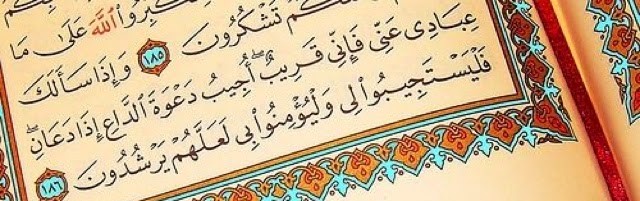 كَبِّرُوا۟ ٱللَّهَ عَلَىٰ مَا
تَشْكُرُونَ ١٨٥ وَإِذَا سَأَلَكَ
عِبَادِى عَنِّى فَإِنِّى قَرِيبٌ ۖ أُجِيبُ دَعْوَةَ ٱلدَّاعِ إِذَا دَعَانِ ۖ
فَلْيَسْتَجِيبُوا۟ لِى وَلْيُؤْمِنُوا۟ بِى لَعَلَّهُمْ يَرْشُدُونَ ١٨٦